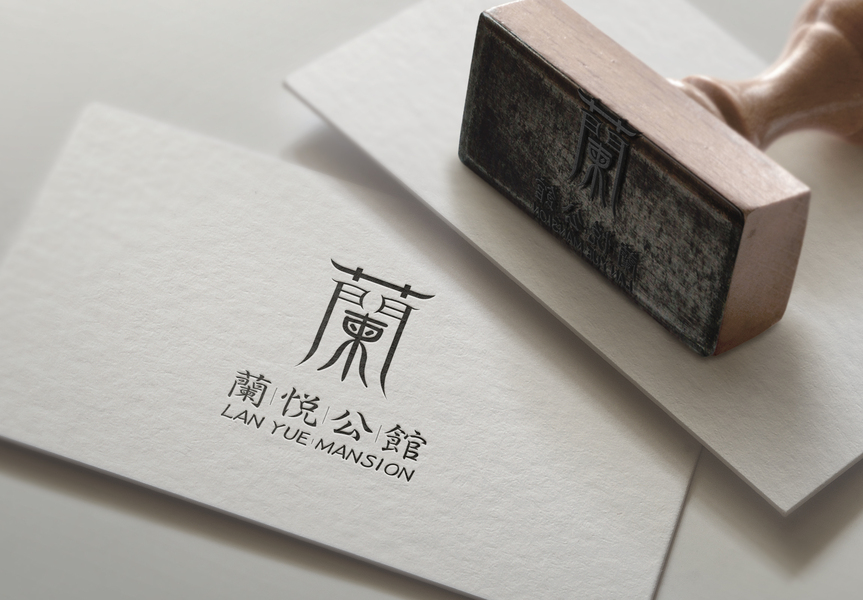 蘭
蘭悦公館
LAN YUE MANSION
蘭